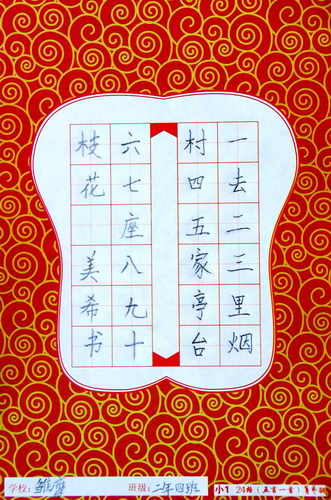 一去二三里烟
村四五家亭台
六七座八九十
枝花 美希书
学校：雏鹰 班级：二年四班 小1 24格（五言一首）